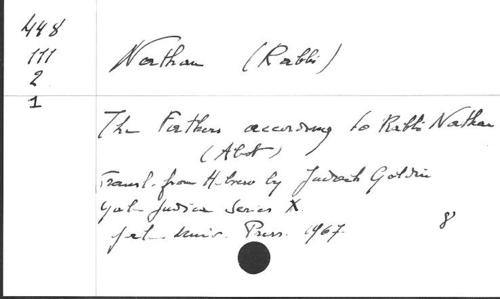 448
111
2
1
Nathan (Rabbi)
The Fathers according to Rabbi Nathan
(Abot)
Transl. from Hebrew by Judah Goldin
Yale Judica Series X.
Yale Univ. Press. 1967.
8